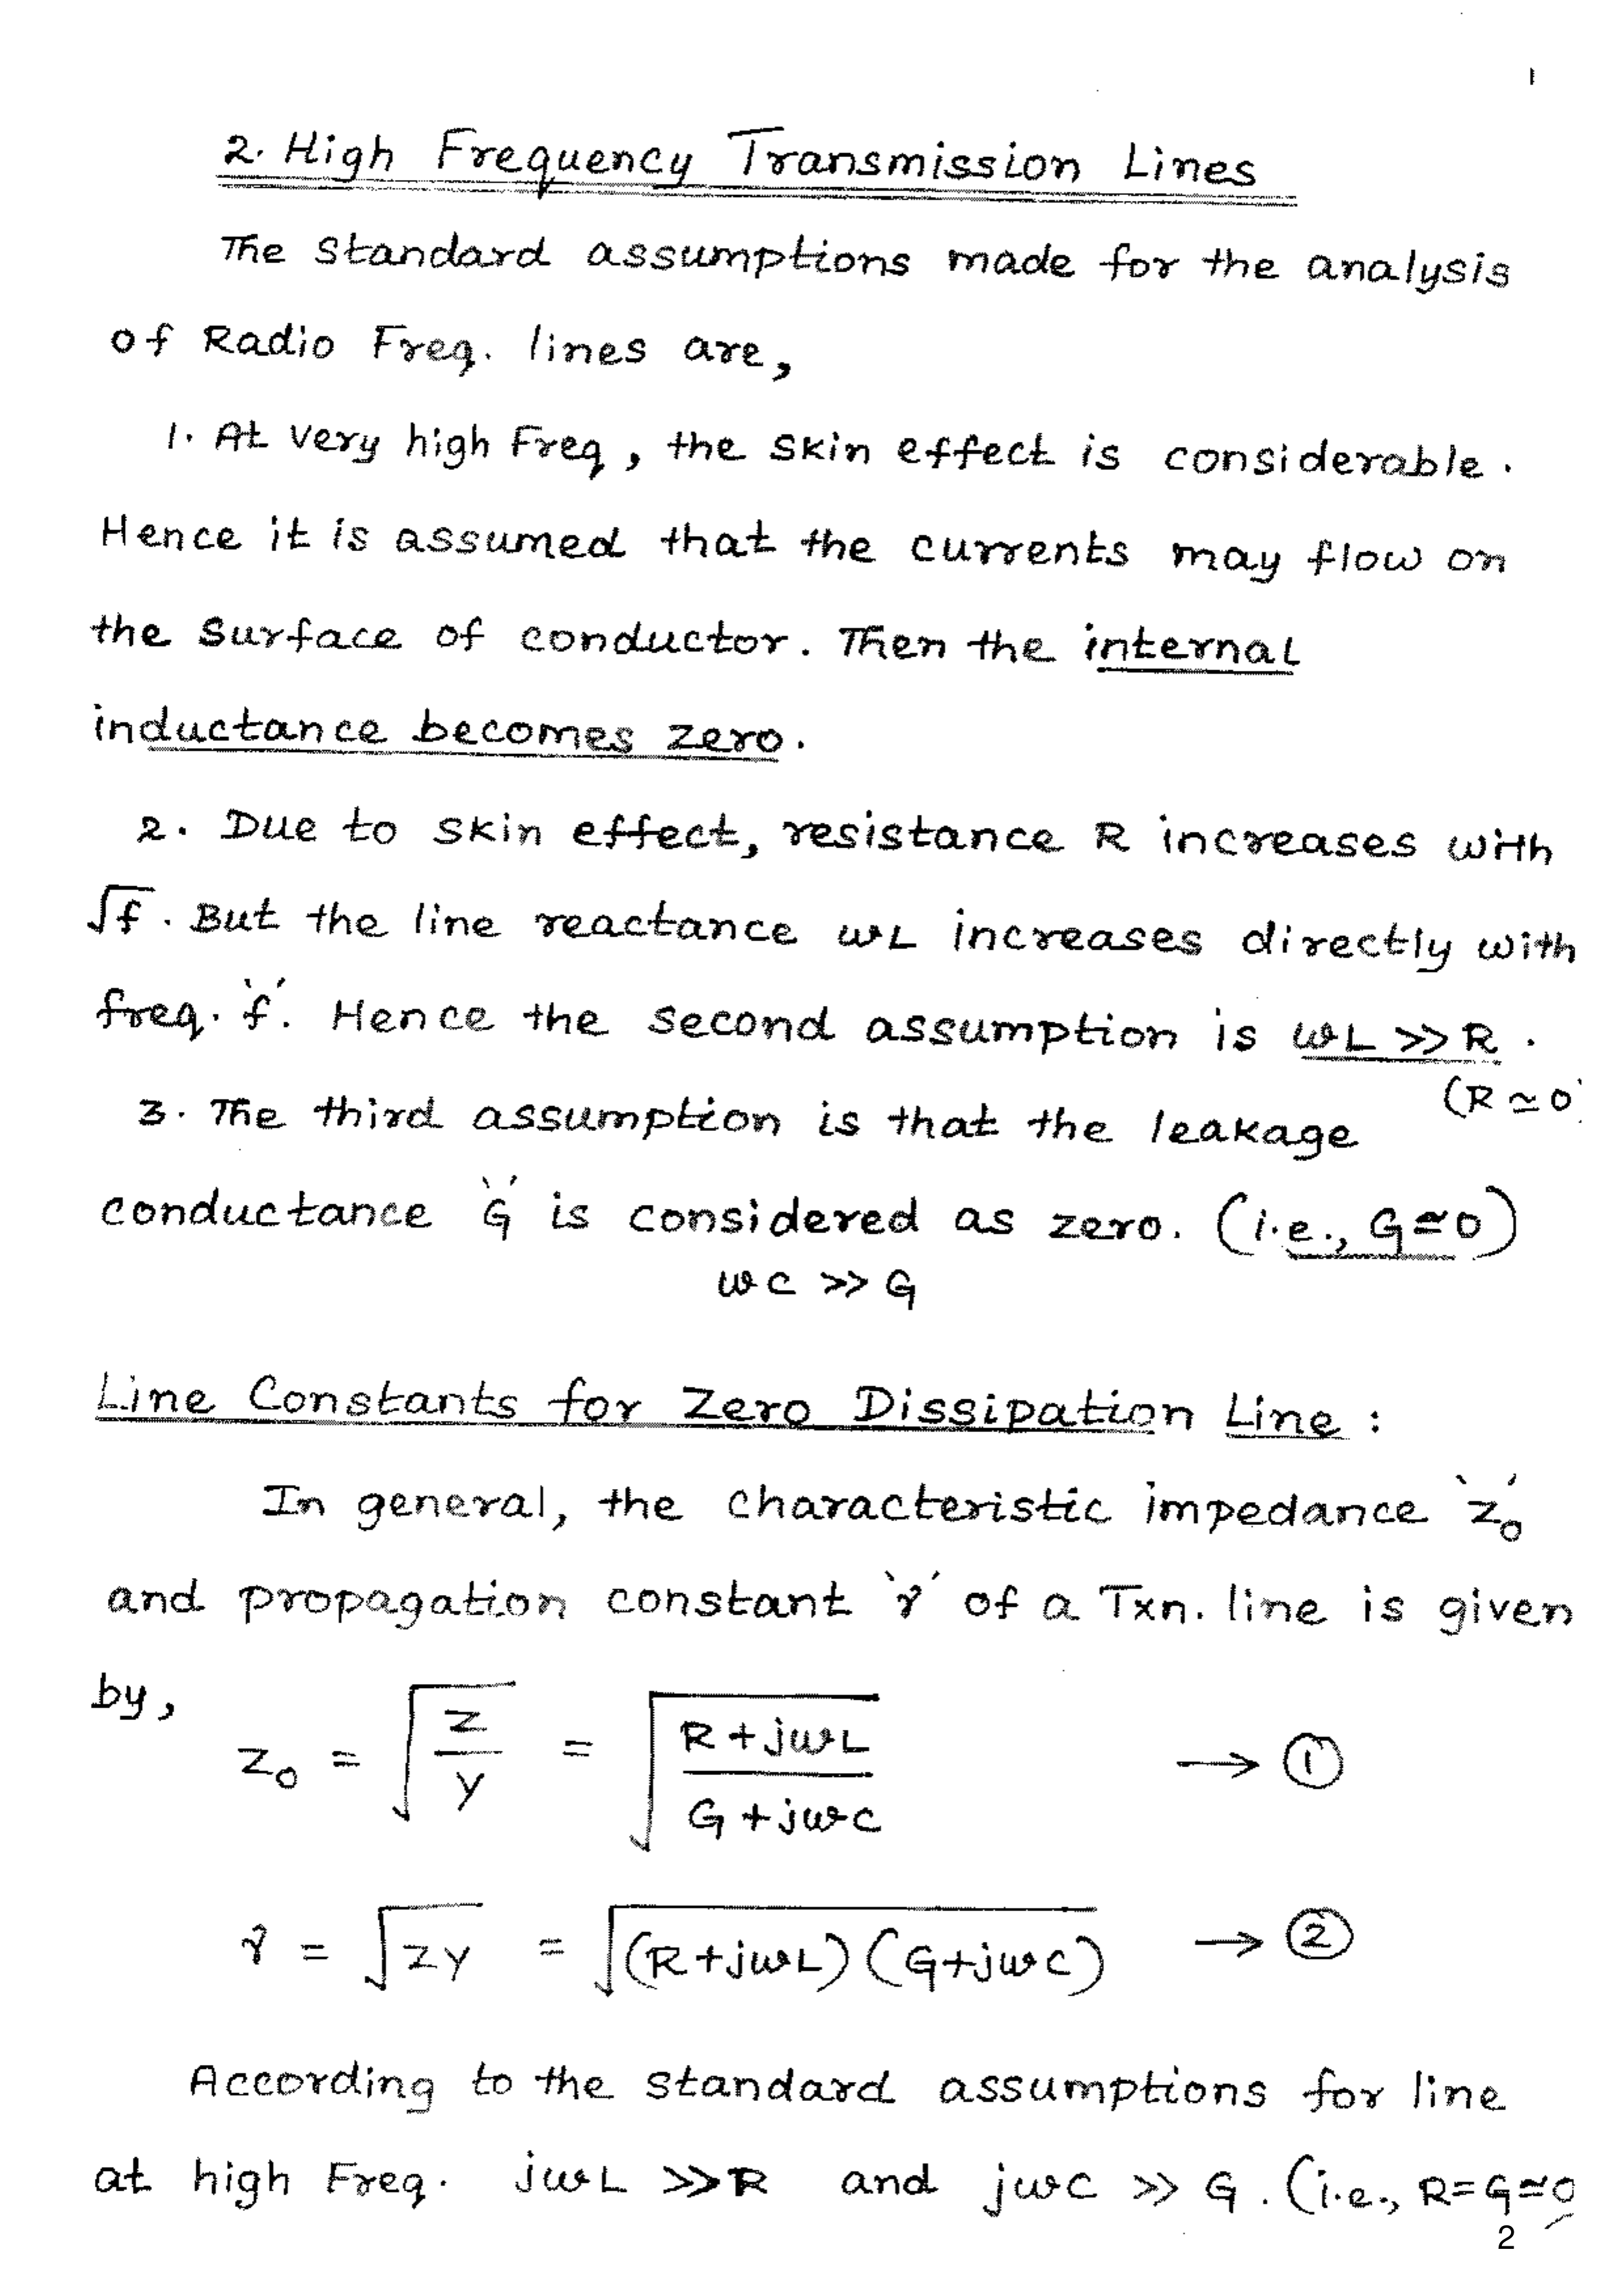 1
2. High Frequency Transmission Lines
The Standard assumptions made for the analysis
of Radio Freq. lines are,
1. At very high Freq, the skin effect is considerable.
Hence it is assumed that the currents may flow on
the surface of conductor. Then the internal
inductance becomes zero.
2. Due to skin effect, resistance R increases with
√f. But the line reactance ωL increases directly with
freq. 'f'. Hence the second assumption is ωL >> R.
(R ≃ 0)
3. The third assumption is that the leakage
conductance 'G' is considered as zero. (i.e., G≃0)
ωC >> G
Line Constants for Zero Dissipation Line :
In general, the characteristic impedance 'Z₀'
and propagation constant 'γ' of a Txn. line is given
by,
Z₀ = √(Z/Y) = √((R+jωL)/(G+jωC)) → ①
γ = √ZY = √((R+jωL)(G+jωC)) → ②
According to the standard assumptions for line
at high Freq. jωL >>R and jωC >> G. (i.e., R=G≃0
2